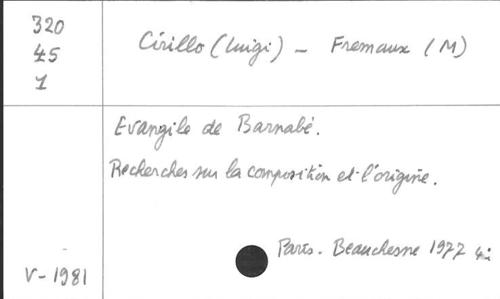 320
45
1
Cirillo (Luigi) - Fremaux (M)
Evangile de Barnabé.
Recherches sur la composition et l'origine.
Paris. Beauchesne 1977
V-1981